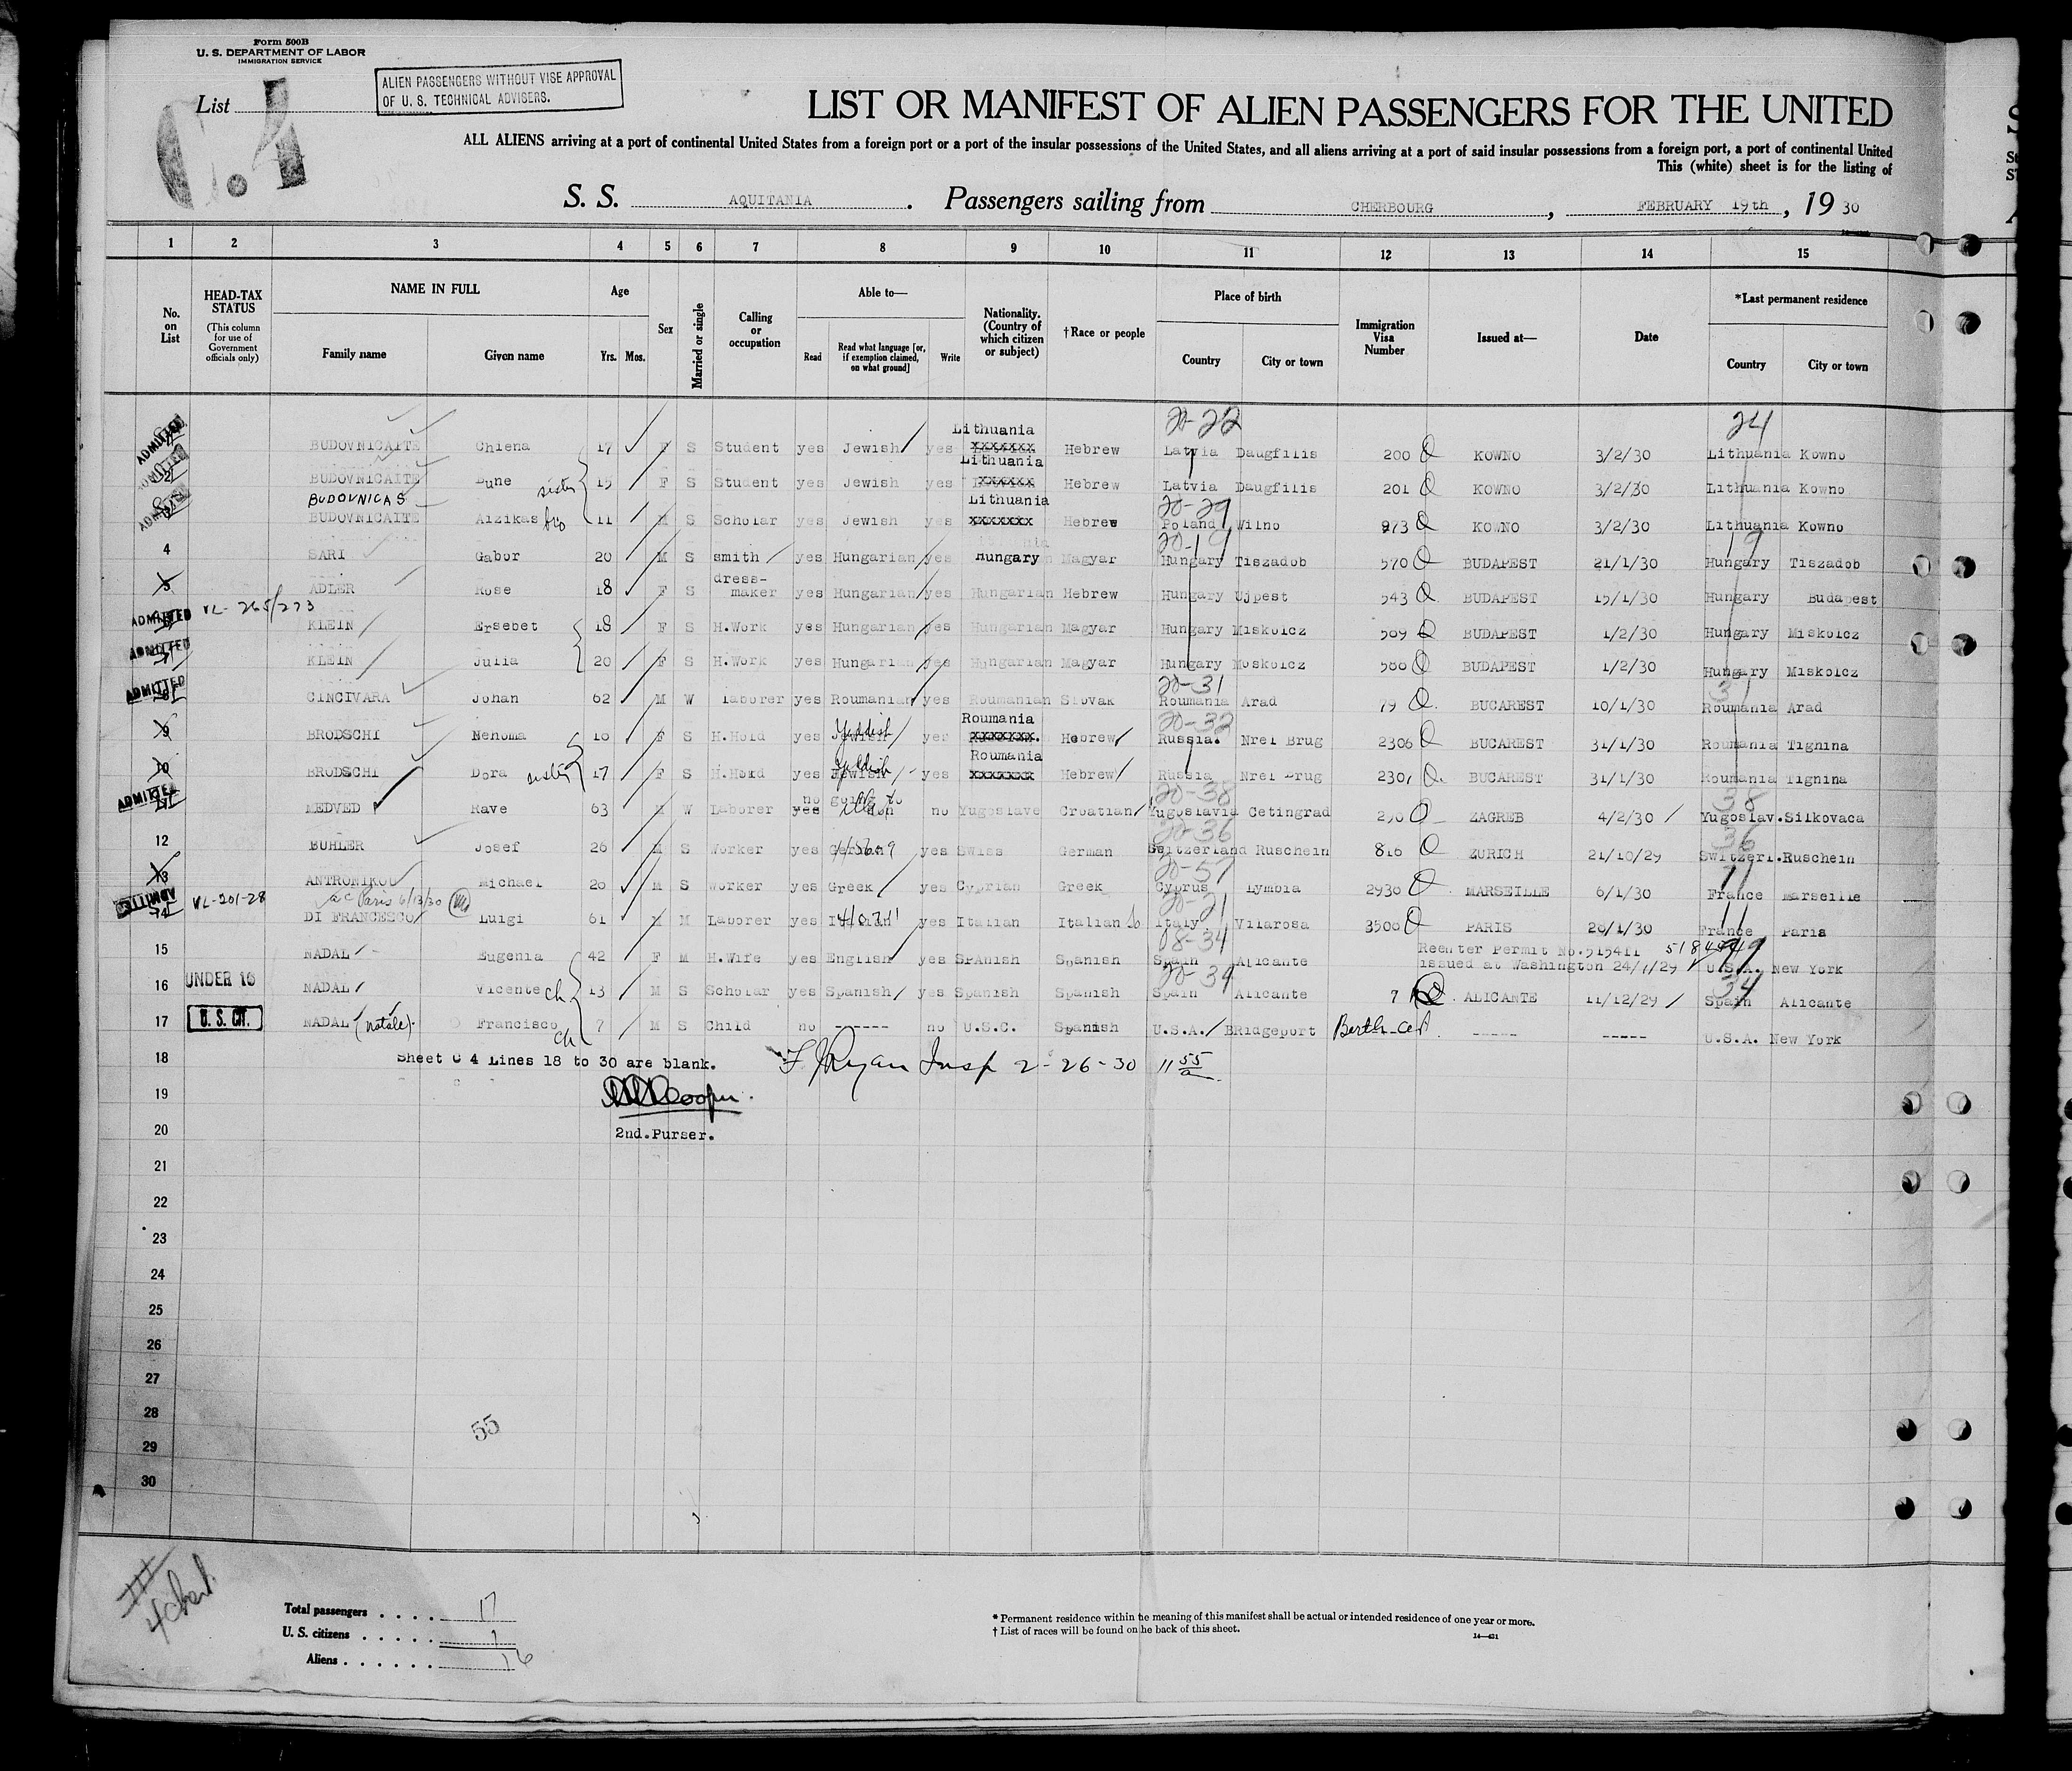 Form 500B
U. S. DEPARTMENT OF LABOR
IMMIGRATION SERVICE
List C.4
ALIEN PASSENGERS WITHOUT VISE APPROVAL
OF U. S. TECHNICAL ADVISERS.
LIST OR MANIFEST OF ALIEN PASSENGERS FOR THE UNITED
ALL ALIENS arriving at a port of continental United States from a foreign port or a port of the insular possessions of the United States, and all aliens arriving at a port of said insular possessions from a foreign port, a port of continental United
This (white) sheet is for the listing of
S. S. AQUITANIA. Passengers sailing from CHERBOURG, FEBRUARY 19th, 19 30
1 2 3 4 5 6 7 8 9 10 11 12 13 14 15
No. on List
HEAD-TAX STATUS (This column for use of Government officials only)
NAME IN FULL
Family name Given name
Age
Yrs. Mos.
Sex
Married or single
Calling or occupation
Able to—
Read
Read what language [or, if exemption claimed, on what ground]
Write
Nationality. (Country of which citizen or subject)
†Race or people
Place of birth
Country City or town
Immigration Visa Number
Issued at—
Date
*Last permanent residence
Country City or town
20-22 24
Lithuania
ADMITTED BUDOVNICAITE Chiena 17 F S Student yes Jewish yes xxxxxxx Hebrew Latvia Daugfilis 200 KOWNO 3/2/30 Lithuania Kowno
Lithuania
ADMITTED BUDOVNICAITE Dune sister 15 F S Student yes Jewish yes xxxxxxx Hebrew Latvia Daugfilis 201 KOWNO 3/2/30 Lithuania Kowno
BUDOVNICAS Lithuania 20-29
ADMITTED BUDOVNICAITE Aizikas bro 11 M S Scholar yes Jewish yes xxxxxxx Hebrew Poland Wilno 973 KOWNO 3/2/30 Lithuania Kowno
20-19 19
4 SARI Gabor 20 M S smith yes Hungarian yes Hungary Magyar Hungary Tiszadob 570 BUDAPEST 21/1/30 Hungary Tiszadob
5 ADLER Rose 18 F S dress-maker yes Hungarian yes Hungarian Hebrew Hungary Ujpest 543 BUDAPEST 15/1/30 Hungary Budapest
ADMITTED VL-265/273 KLEIN Ersebet 18 F S H.Work yes Hungarian yes Hungarian Magyar Hungary Miskolcz 589 BUDAPEST 1/2/30 Hungary Miskolcz
ADMITTED KLEIN Julia 20 F S H.Work yes Hungarian yes Hungarian Magyar Hungary Moskolcz 588 BUDAPEST 1/2/30 Hungary Miskolcz
20-31 31
ADMITTED CINCIVARA Johan 62 M W laborer yes Roumanian yes Roumanian Slovak Roumania Arad 79 BUCAREST 10/1/30 Roumania Arad
Yeddish Roumania 20-32
9 BRODSCHI Nehoma 18 F S H.Hold yes Jewish yes xxxxxxx. Hebrew Russia. Nrel Brug 2306 BUCAREST 31/1/30 Roumania Tignina
Yeddish Roumania
10 BRODSCHI Dora sister 17 F S H.Hold yes Jewish yes xxxxxxx Hebrew Russia Nrel Brug 2307 BUCAREST 31/1/30 Roumania Tignina
no going to 20-38 38
ADMITTED MEDVED Rave 63 M W Laborer yes no Yugoslave Croatian Yugoslavia Cetingrad 290 ZAGREB 4/2/30 Yugoslav. Silkovaca
20-36 36
12 BUHLER Josef 26 M S Worker yes German yes Swiss German Switzerland Ruschein 816 ZURICH 21/10/29 Switzerl. Ruschein
20-57 11
13 ANTRONIKOU Michael 28 M S Worker yes Greek yes Cyprian Greek Cyprus Lymbia 2930 MARSEILLE 6/1/30 France Marseille
ac Paris 6/13/30 20-21 11
ADMITTED 14 VL-201-28 DI FRANCESCO Luigi 61 M M Laborer yes Italian yes Italian Italian So Italy Vilarosa 3508 PARIS 28/1/30 France Paris
08-34
Reenter Permit No.515411
15 NADAL Eugenia 42 F M H.Wife yes English yes Spanish Spanish Spain Alicante issued at Washington 24/7/29 U.S.A. New York
20-34 34
16 UNDER 16 NADAL Vicente ch 13 M S Scholar yes Spanish yes Spanish Spanish Spain Alicante 7 ALICANTE 11/12/29 Spain Alicante
17 U. S. CIT. NADAL (natale). Francisco ch 7 M S Child no ------ no U.S.C. Spanish U.S.A. BRidgeport Berth-Cert. ----- ----- U.S.A. New York
18 Sheet C 4 Lines 18 to 30 are blank. F J Ryan Insp 2-26-30 11 55/a
19 Cooper.
20 2nd.Purser.
21
22
23
24
25
26
27
28
55
29
30
4 cherb.
Total passengers . . . . 17
U. S. citizens . . . . . 1
Aliens . . . . . . 16
* Permanent residence within the meaning of this manifest shall be actual or intended residence of one year or more.
† List of races will be found on the back of this sheet.
14—421